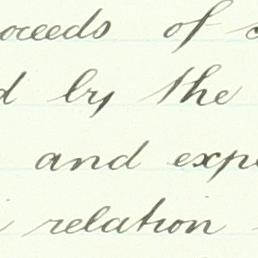 oceeds of
by the
and expe
relation